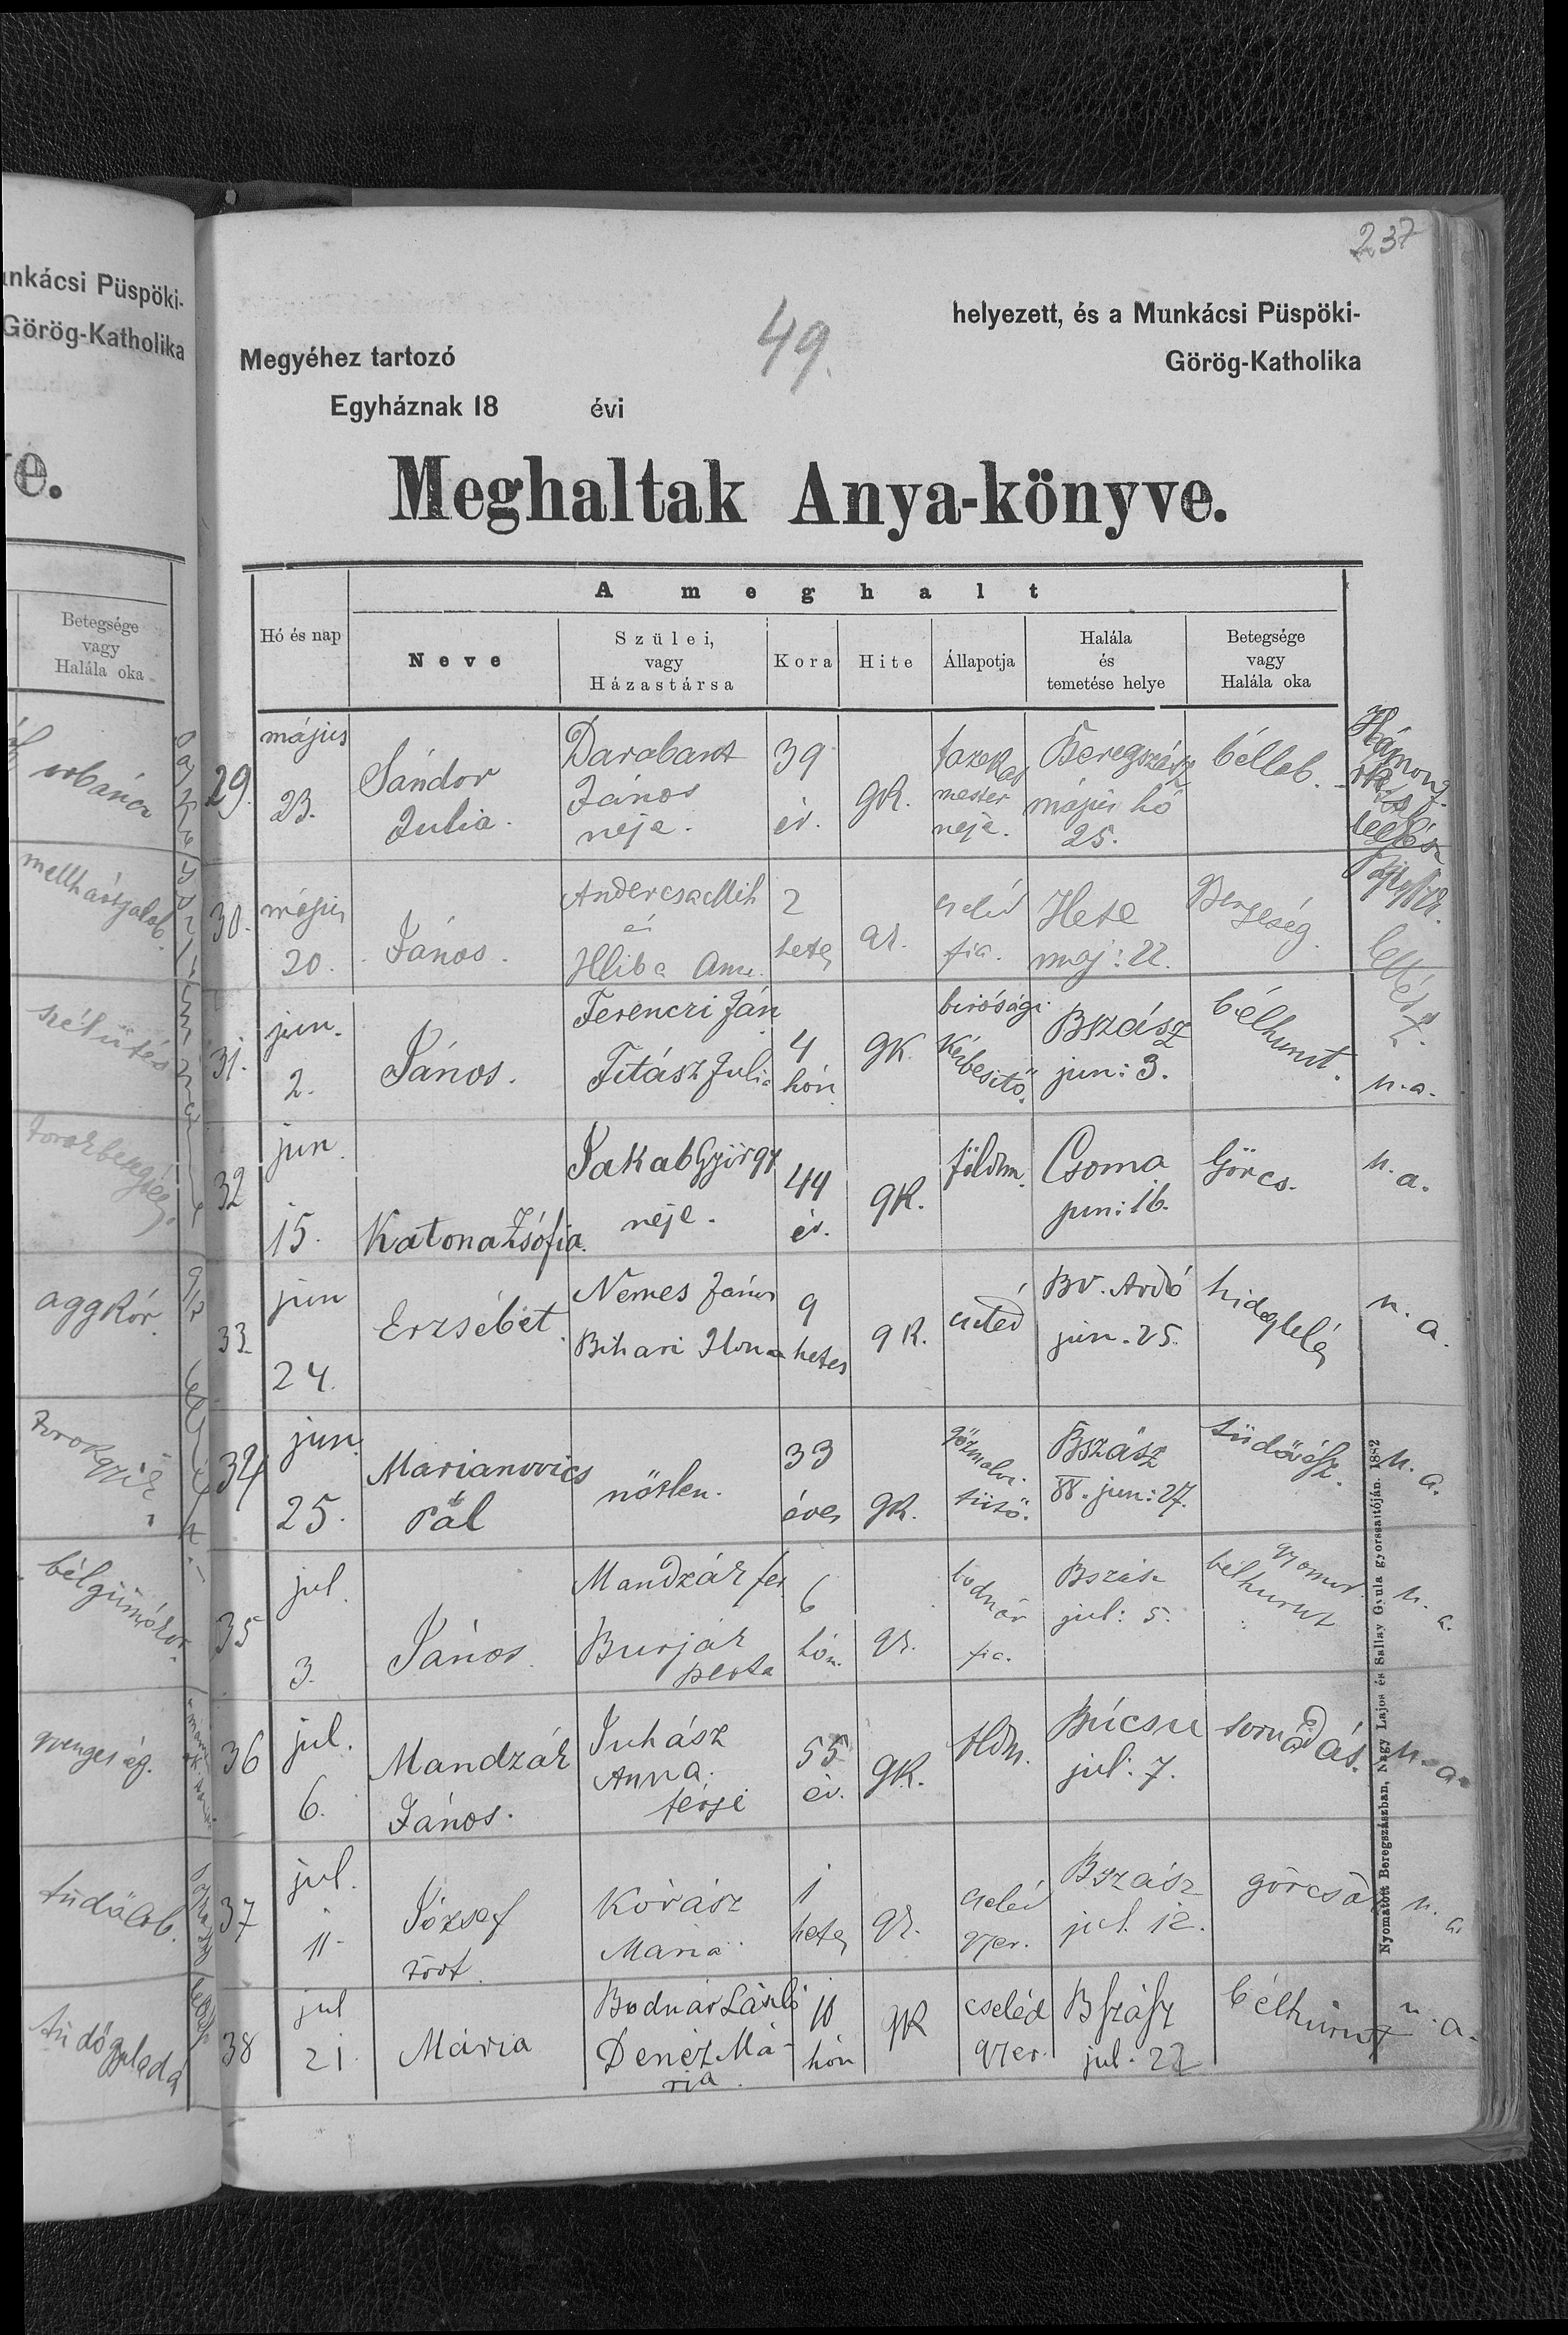 237
49.
helyezett, és a Munkácsi Püspöki-
Megyéhez tartozó
Görög-Katholika
Egyháznak 18 évi
Meghaltak Anya-könyve.
A meghalt
Hó és nap
Neve
Szülei,
vagy
Házastársa
Kora
Hite
Állapotja
Halála
és
temetése helye
Betegsége
vagy
Halála oka
29. május 23. Sándor Julia. Darabant János neje. 39 év. gk. fazekas mester neje. Beregszász május hó 25. béllob.
30. május 20. János. Andercsa Mih és Hliba Anna 2 hetes gk. cseléd fia. Hete maj: 22. gyengeség.
31. jun. 2. János. Ferenczi Ján Titász Julia 4 hón gk. birósági kézbesitő. Bszász jun: 3. bélhurut. u.a.
32 jun. 15. Katona Zsófia. Jakab György neje. 44 év. gk. földm. Csoma jun: 16. Görcs. u.a.
33. jun 24. Erzsébet. Nemes János Bihari Ilona 9 hetes gk. cseléd BV. Ardó jun. 25. hideglelés u.a.
34 jun. 25. Marianovics Pál nőtlen. 33 éves gk. gőzmalmi fűtő. Bszász jun: 27. tüdővész. u.a.
35 jul. 3. János. Mandzák fer. Burják Berta 6 hón. gk. bodnár fia. Bszász jul: 5. gyomor bélhurut u.a.
36 jul. 6. Mandzák János. Juhász Anna. férje 55 év. gk. földm. Búcsu jul: 7. sorvadás. u.a.
37 jul. 11. József tört. Kovász Mária 1 hetes gk. cseléd gyer. Bszász jul. 12. görcsök u.a.
38 jul 21. Mária Bodnár László Denéz Mária. 10 hón gk cseléd gyer. Bszász jul. 22 bélhurut u.a.
Nyomatott Beregszászban, Nagy Lajos és Sallay Gyula gyorssajtóján. 1882
unkácsi Püspöki-
Görög-Katholika
e.
Betegsége
vagy
Halála oka
orbáncz
mellhártyalob.
szélütés
aggkór.
torokgyík
bélgümőkor.
gyengeség.
tüdőlob.